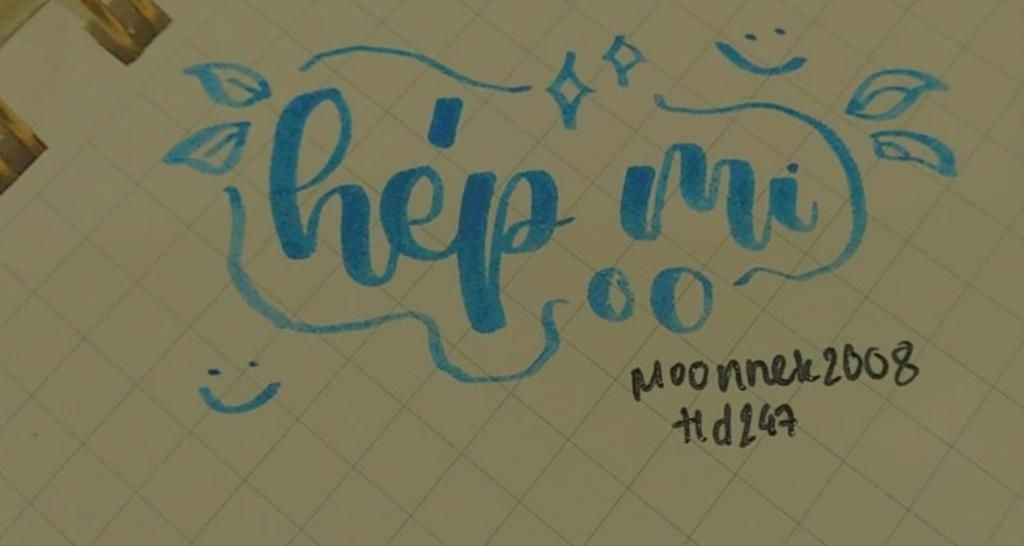 hép mi
oo
Moonnek2008
Hd247